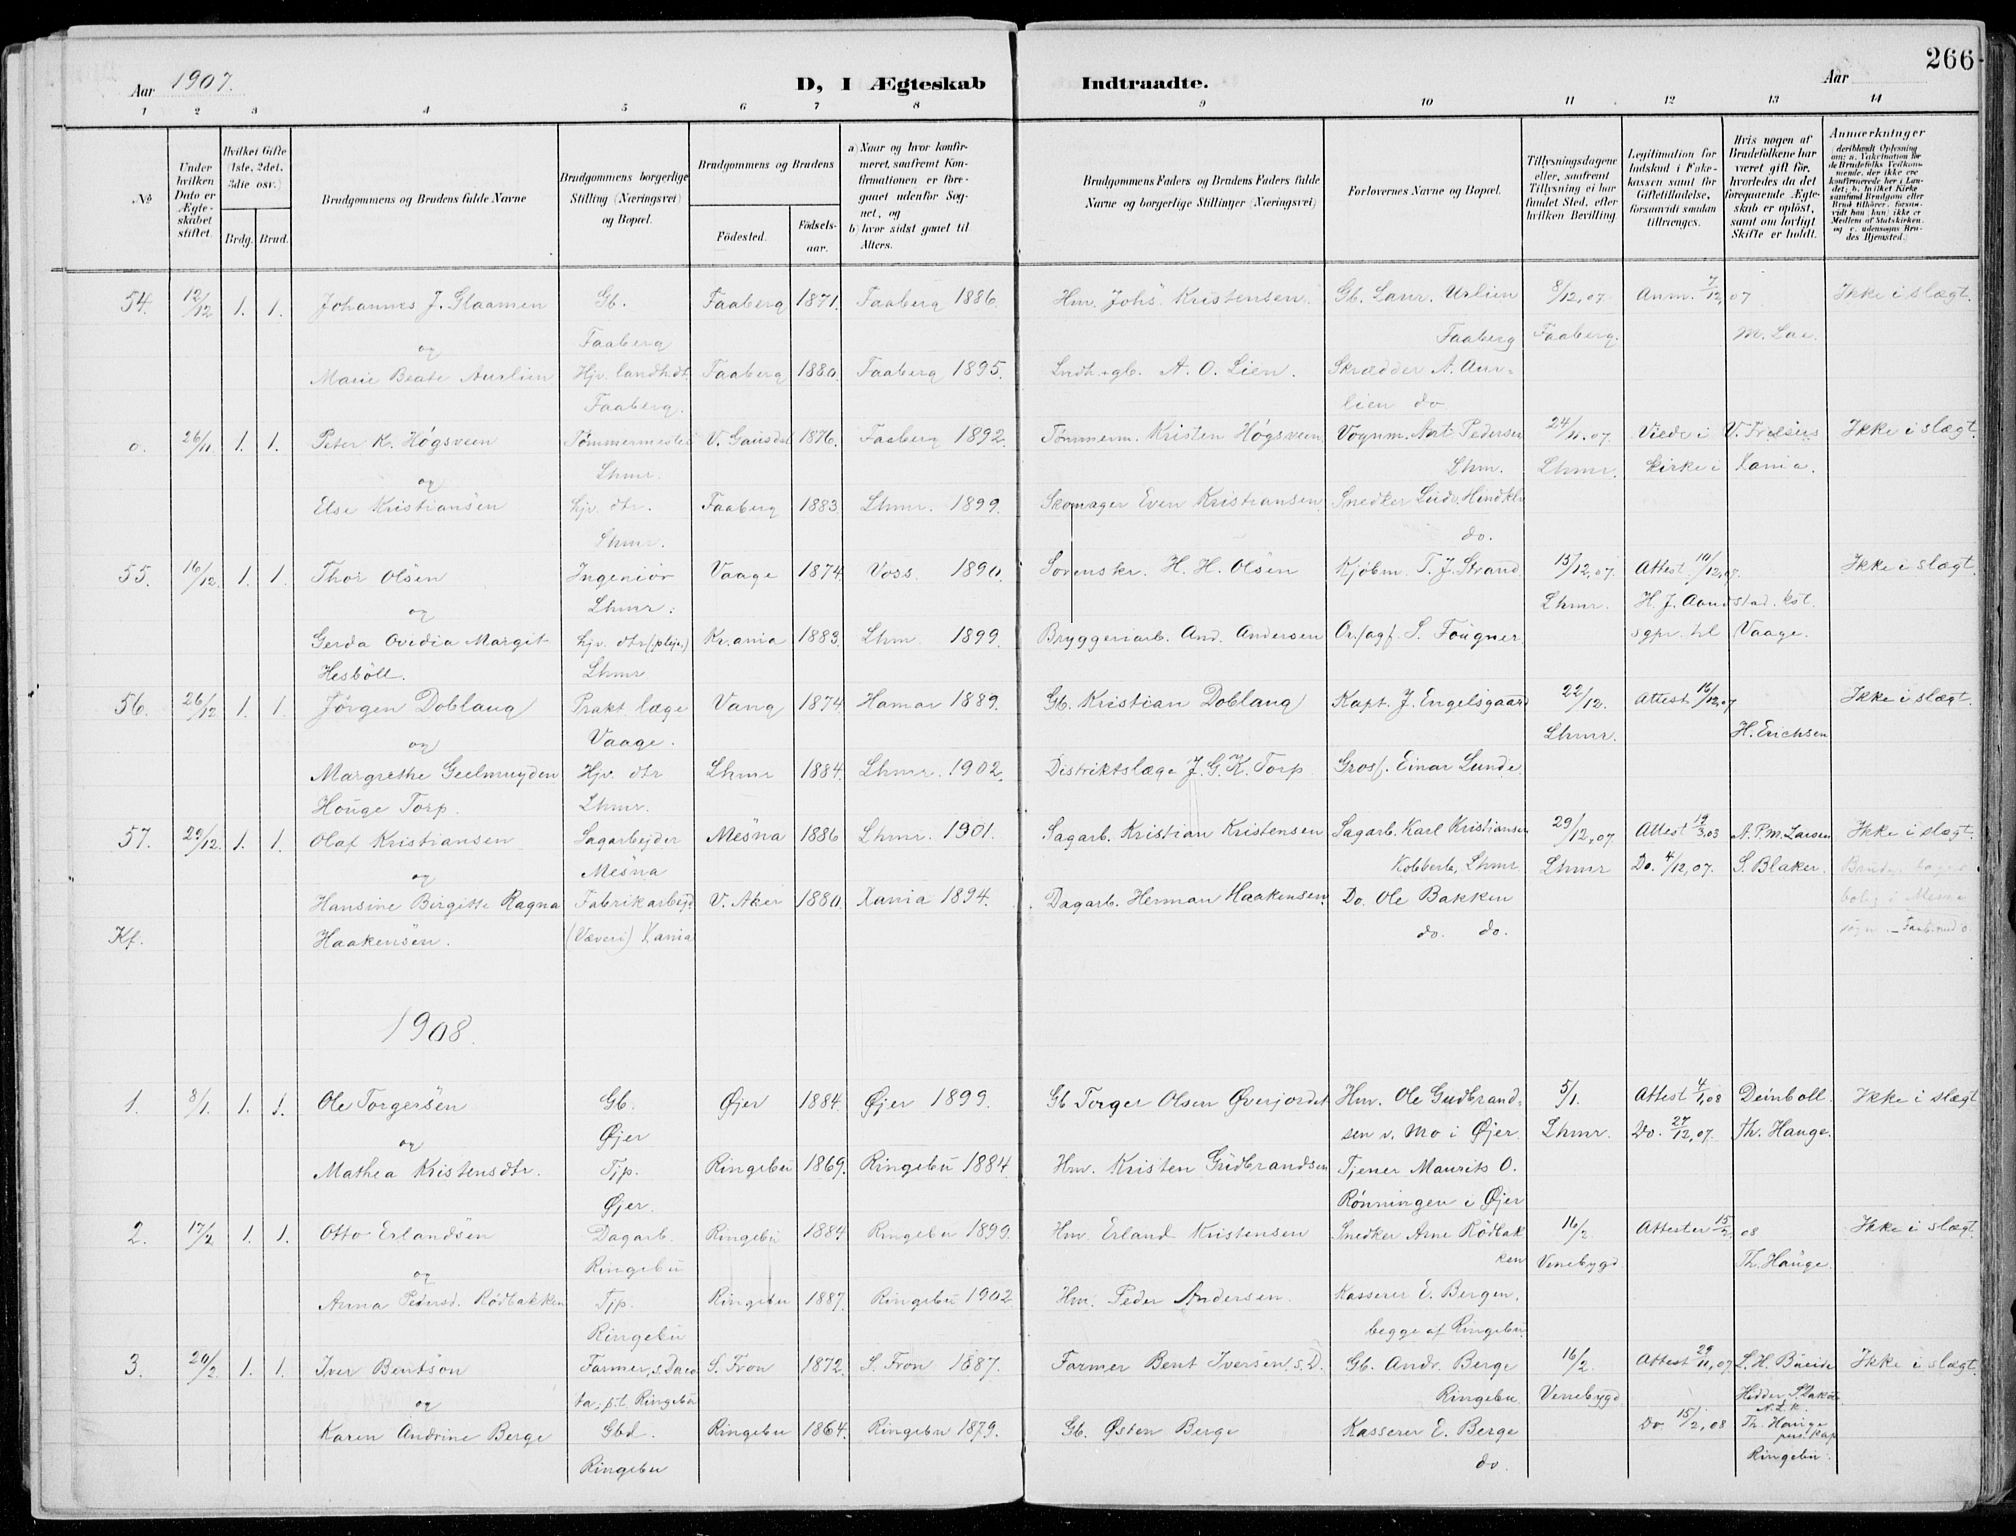 266
Aar 1907.
D, I Ægteskab Indtraadte.
Aar
1 2 3 4 5 6 7 8 9 10 11 12 13 14
No
Under hvilken Dato er Ægteskabet stiftet.
Hvilket Gifte (1ste, 2det, 3die osv.)
Brdg. Brud.
Brudgommens og Brudens fulde Navne
Brudgommens borgerlige Stilling (Næringsvei) og Bopæl.
Brudgommens og Brudens
Fødested. Fødselsaar.
a) Naar og hvor konfirmeret, saafremt Konfirmationen er foregaaet udenfor Sognet, og
b) hvor sidst gaaet til Alters.
Brudgommens Faders og Brudens Faders fulde Navne og borgerlige Stillinger (Næringsvei)
Forlovernes Navne og Bopæl.
Tillysningsdagene eller, saafremt Tillysning ei har fundet Sted, efter hvilken Bevilling.
Legitimation for Indskud i Enkekassen samt for Giftetilladelse, forsaavidt saadan tiltrænges.
Hvis nogen af Brudefolkene har været gift før, hvorledes da det foregaaende Ægteskab er opløst, samt om lovligt Skifte er holdt.
Anmærkninger
54. 12/12 1. 1. Johannes J. Glaamen Gb. Faaberg 1871. Faaberg 1886. Hm. Johs. Kristensen. Gb. Laur. Urlien 8/12.07 Anm. 7/12 07 Ikke i slægt.
og Faaberg Faaberg Faaberg. M. Lae.
Marie Beate Aurlien Hjv. landh.dt. Faaberg 1880. Faaberg 1895. Lndh.+gb. A. O. Lien. Skrædder A. Aur-
Faaberg. lien do
o. 26/11 1. 1. Peter K. Høgsveen Tømmermester V. Gausdal 1876. Faaberg 1892. Tømmerm. Kristen Høgsveen Vognm. Ant. Pedersen 24/11.07. Viede i V. Frelsers Ikke i slægt.
og Lhmr. Lhm. Lhmr. kirke i Xania.
Else Kristiansen hjv. dtr. Faaberg 1883. Lhmr. 1899. Skomager Even Kristiansen. Snedker Ludv.
Lhmr. do.
55. 16/12 1. 1. Thor Olsen Ingeniør Vaage 1874. Voss 1890. Sorenskr. H. H. Olsen Kjøbm. T. J. Strand 13/12.07. Attest 10/12.07. Ikke i slægt.
og Lhmr: Lhmr. H. J. Aandstad. kst.
Gerda Ovidia Margit hjv. dtr (plejr.) Kr.ania 1883. Lhm. 1899. Bryggeriarb. And. Andersen Or.sagf. S. Fougner sgpr. til Vaage.
Hesbøll. Lhmr
56. 26/12 1. 1. Jørgen Doblaug Prakt læge Vang 1874. Hamar 1889. Gb. Kristian Doblaug Kapt. J. Engelsgaard 22/12. Attest 16/12.07 Ikke i slægt.
og Vaage. Lhmr. H. Erichsen
Margrethe Geelmuyden Hjv. dtr Lhmr 1884. Lhmr. 1902. Distriktslæge J. G. K. Torp Gros. Einar Lunde
Houge Torp. Lhmr.
57. 29/12. 1. 1. Olaf Kristiansen Sagarbejder Mesna 1886 Lhmr. 1901. Sagarb. Kristian Kristensen Sagarb. Karl Kristiansen 29/12.07 Attest 19/3.03 N. P. M. Larsen Ikke i slægt.
og Mesna Lhmr Lhmr Do. 4/12.07. S. Blaker.
Hansine Birgitte Ragna Fabrikarbejd. V. Aker 1880. Xania 1894. Dagarb. Herman Haakensen. Do. Ole Bakken
Kf. Haakensen. (Væveri) Xania do. do.
1908.
1. 8/1. 1. 1. Ole Torgersen Gb. Øjer 1884. Øjer 1899. Gb Torger Olsen Øverjordet Hm. Ole Gudbrand- 5/1. Attest 4/1.08 Deinboll. Ikke i slægt
og Øjer sen v. Mo i Øjer. Lhmr. Do. 27/12.07. Th. Hauge.
Mathea Kristensdtr. Tjp. Ringebu 1869. Ringebu 1884. Hm. Kristen Gudbrandsen Tjener Maurits O.
Øjer. Rønningen i Øjer
2. 17/2 1. 1. Otto Erlandsen Dagarb. Ringebu 1884 Ringebu 1899. Hm. Erland Kristensen Snedker Arne Rødbak 16/2. Attester 15/2 08 Ikke i slægt
og Ringebu ken Venebygd Th. Hauge.
Anna Pedersd. Rødbakken Tjp. Ringebu 1887. Ringebu 1902 Hm. Peder Andersen. Kasserer E. Bergen.
Ringebu begge af Ringebu.
3. 20/2. 1. 1. Iver Bentson Farmer, s. Daco S. Fron 1872. S. Fron 1887. Farmer Bent Iversen, s. D. Gb. Andr. Berge 16/2. Attest 29/11.07. Ikke i slægt.
og ta; p.t. Ringebu Ringebu Venebygd
Karen Andrine Berge Gbd. Ringebu 1864. Ringebu 1879. Gb. Østen Berge Kasserer E. Berge Do 15/2.08 Th. Hauge
Ringebu do. Ringebu.